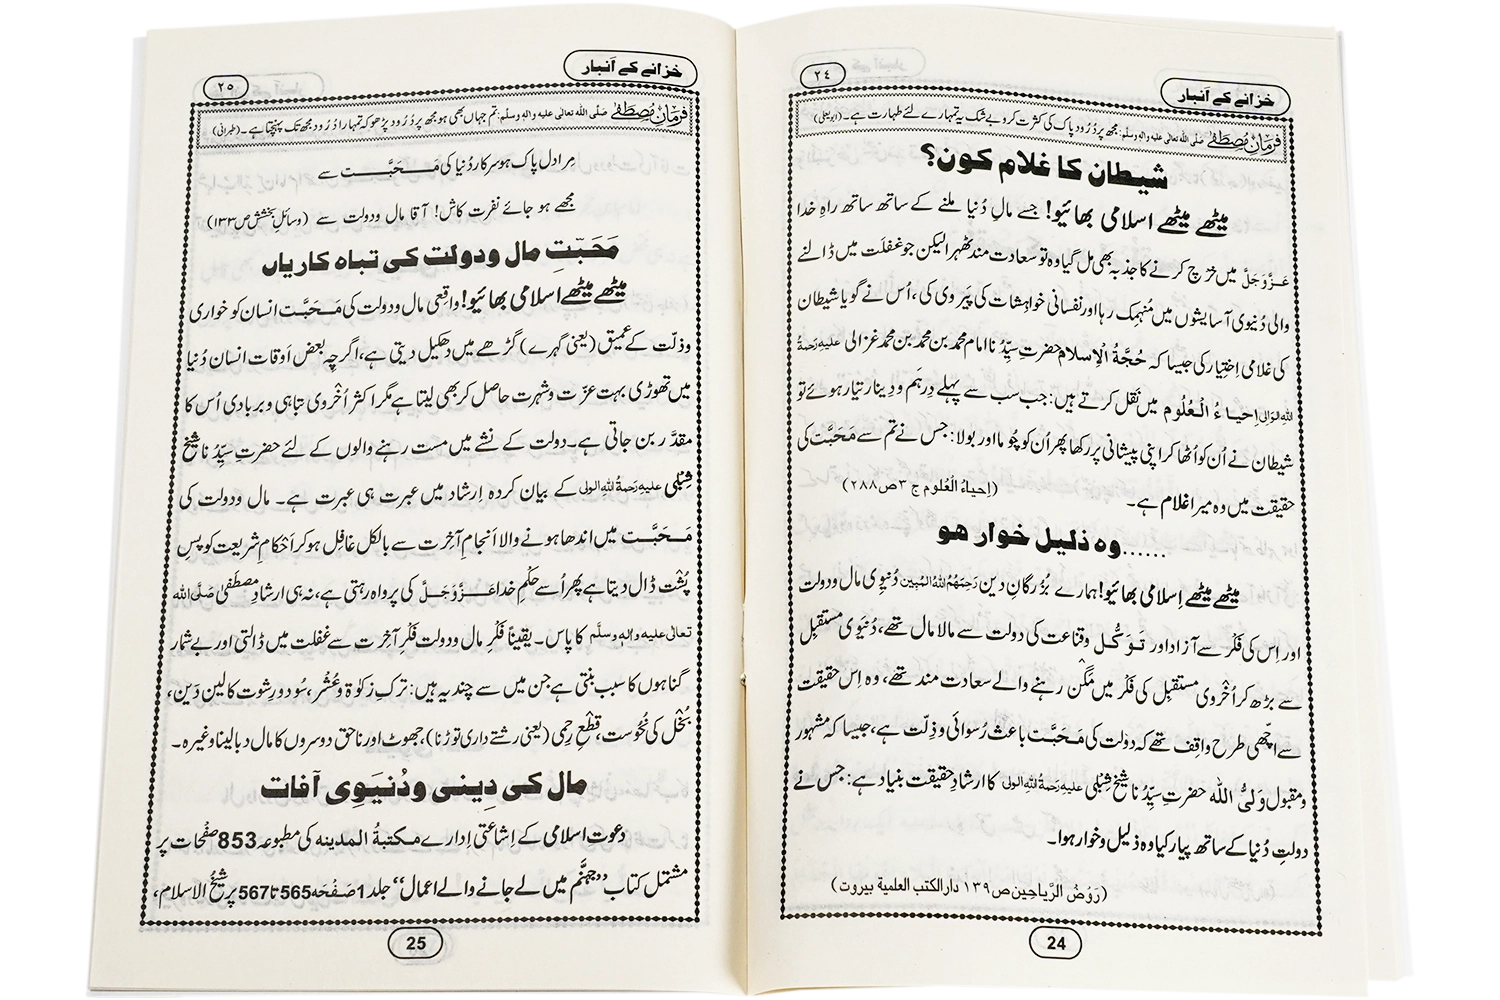 خزانے کے اَنبار
٢٤
فرمانِ مُصطَفٰے صَلَّی اللہ تعالٰی علیہ والہٖ وسلّم: مجھ پر دُرُودِ پاک کی کثرت کرو بے شک یہ تمہارے لئے طہارت ہے۔ (ابویعلیٰ)
شیطان کا غلام کون؟
میٹھے میٹھے اسلامی بھائیو! جسے مالِ دُنیا ملنے کے ساتھ ساتھ راہِ خدا
عَزَّوَجَلَّ میں خرْچ کرنے کا جذبہ بھی مل گیا وہ تو سعادت مند ٹھہرا لیکن جو غفلت میں ڈالنے
والی دُنیوی آسائشوں میں مُنہمِک رہا اور نفسانی خواہِشات کی پَیروی کی، اُس نے گویا شیطان
کی غلامی اِختِیار کی جیسا کہ حُجَّۃُ الْاِسلام حضرتِ سیِّدُنا امام محمد بن محمد بن محمد غزالی علیہ رَحمۃُ
اللہِ الوَالِی اِحیاءُ الْعُلُوم میں نَقْل کرتے ہیں: جب سب سے پہلے دِرہَم و دینار تیّار ہوئے تو
شیطان نے اُن کو اُٹھا کر اپنی پیشانی پر رکھا پھر اُن کو چُوما اور بولا: جس نے تم سے مَحَبَّت کی
حقیقت میں وہ میرا غلام ہے۔ (اِحیاءُ الْعُلوم ج ٣ ص ٢٨٨)
وہ ذلیل خوار ہو......
میٹھے میٹھے اِسلامی بھائیو! ہمارے بُزُرگانِ دین رَحِمَہُمُ اللہُ الْمُبِین دُنیوی مال و دولت
اور اِس کی فِکْر سے آزاد اور تَوَکُّل و قناعت کی دولت سے مالا مال تھے، دُنیوی مستقبِل
سے بڑھ کر اُخْرَوی مستقبِل کی فِکْر میں مگن رہنے والے سعادت مند تھے، وہ اِس حقیقت
سے اچّھی طرح واقِف تھے کہ دولت کی مَحَبَّت باعثِ رُسوائی و ذِلّت ہے، جیسا کہ مشہور
و مقبول وَلیُّ اللہ حضرتِ سیِّدُنا شیخ شِبْلی علیہ رَحمۃُ اللہِ الولی کا ارشادِ حقیقت بنیاد ہے: جس نے
دولتِ دُنیا کے ساتھ پیار کیا وہ ذلیل و خوار ہوا۔
(رَوْضُ الرِّیاحین ص ١٣٩ دارالکتب العلمیۃ بیروت)
24
خزانے کے اَنبار
٢٥
فرمانِ مُصطَفٰے صَلَّی اللہ تعالٰی علیہ والہٖ وسلّم: تم جہاں بھی ہو مجھ پر دُرُود پڑھو کہ تمہارا دُرُود مجھ تک پہنچتا ہے۔ (طبرانی)
مِرا دل پاک ہو سرکار دُنیا کی مَحَبَّت سے
مجھے ہو جائے نفرت کاش! آقا مال و دولت سے (وسائلِ بخشش ص ۱۳۳)
مَحَبّتِ مال و دولت کی تباہ کاریاں
میٹھے میٹھے اسلامی بھائیو! واقِعی مال و دولت کی مَحَبَّت انسان کو خواری
و ذِلّت کے عمیق (یعنی گہرے) گڑھے میں دھکیل دیتی ہے، اگرچہ بعض اَوقات انسان دُنیا
میں تھوڑی بہت عزّت و شہرت حاصل کر بھی لیتا ہے مگر اکثر اُخْرَوی تباہی و بربادی اُس کا
مقدّر بن جاتی ہے۔ دولت کے نشے میں مست رہنے والوں کے لئے حضرتِ سیِّدُنا شیخ
شِبْلی علیہ رَحمۃُ اللہِ الولی کے بیان کردہ اِرشاد میں عبرت ہی عبرت ہے۔ مال و دولت کی
مَحَبَّت میں اندھا ہونے والا اَنجامِ آخِرت سے بالکل غافِل ہو کر اَحْکامِ شریعت کو پسِ
پُشْت ڈال دیتا ہے پھر اُسے حُکْمِ خدا عَزَّوَجَلَّ کی پرواہ رہتی ہے، نہ ہی ارشادِ مصطَفٰے صَلَّی اللہ
تعالٰی علیہ والہٖ وسلَّم کا پاس۔ یقیناً فِکْرِ مال و دولت فکرِ آخِرت سے غفلت میں ڈالتی اور بے شمار
گناہوں کا سبب بنتی ہے جن میں سے چند یہ ہیں: ترکِ زکوٰۃ و عُشْر، سُود و رِشوت کا لین دَین،
بُخْل کی نُحُوست، قَطْعِ رِحمی (یعنی رشتے داری توڑنا)، جھوٹ اور ناحق دوسروں کا مال دبا لینا وغیرہ۔
مال کی دِینی و دُنیَوِی آفات
دعوتِ اسلامی کے اِشاعتی اِدارے مکتبۃُ المدینہ کی مطبوعہ 853 صفْحات پر
مشتمل کتاب ’’جہنَّم میں لے جانے والے اعمال‘‘ جلد 1 صَفْحہ 565 تا 567 پر شیخُ الْاسلام،
25